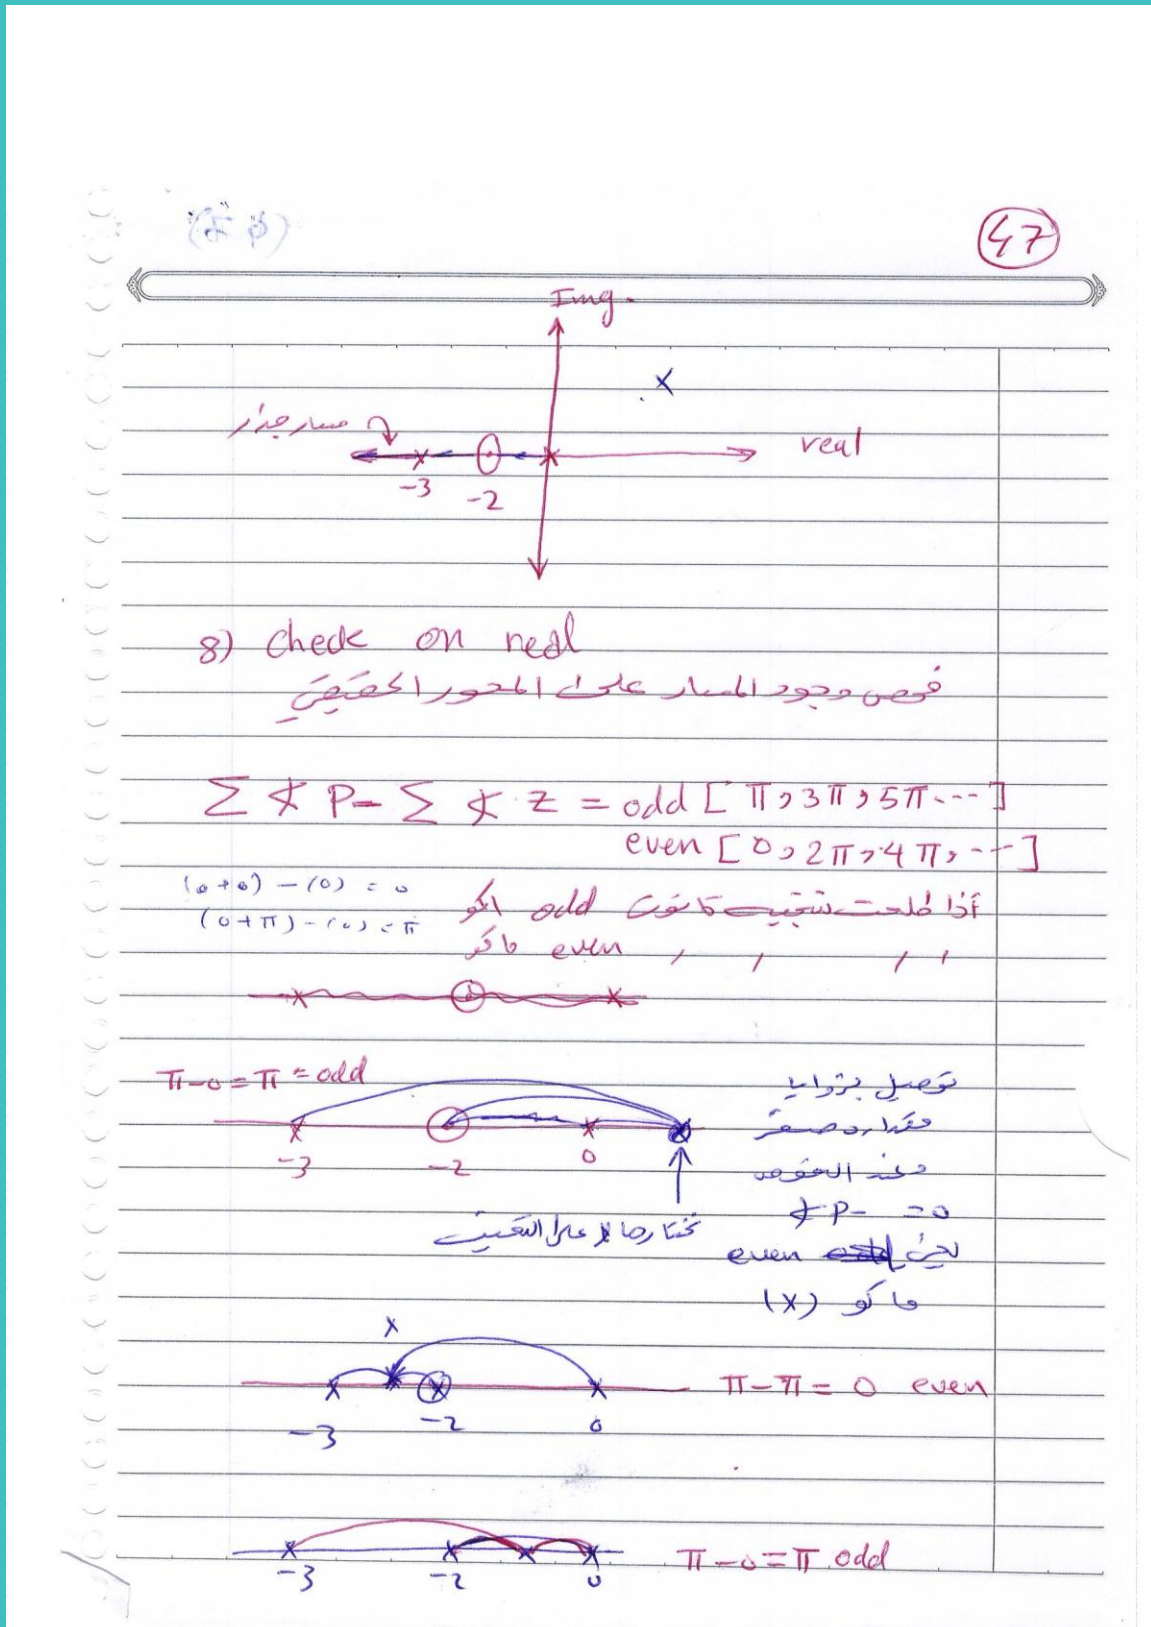 47
Img.
real
مسار جذر
-3 -2
8) check on real
فحص وجود المسار على المحور الحقيقي
∑ ∡ P - ∑ ∡ Z = odd [ π , 3π , 5π .--- ]
even [ 0 , 2π , 4π , --- ]
(0+0) - (0) = 0
(0+π) - (0) = π
أذا طلعت نتيجة قانون odd اكو
, , , , even ماكو
π-0=π=odd
-3 -2 0
توصيل بزوايا
مقداره صفر
∡P- = 0
even
ماكو (x)
على التعيين
x
π-π = 0 even
-3 -2 0
π-0=π odd
-3 -2 0